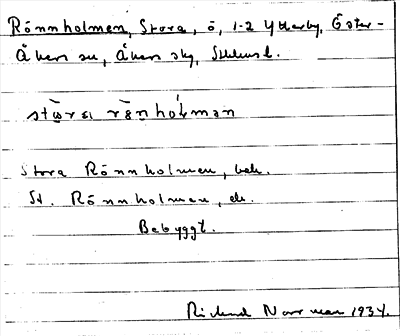 Rönnholmen, Stora, ö, 1-2 Ytterby, Öster-
Åkers sn, Åkers skg, Sthlms l.
stω̄ra rö̀nhólmən
Stora Rönnholmen, bek.
St. Rönnholmen, ek.
Bebyggt.
Rickard Norrman 1934.